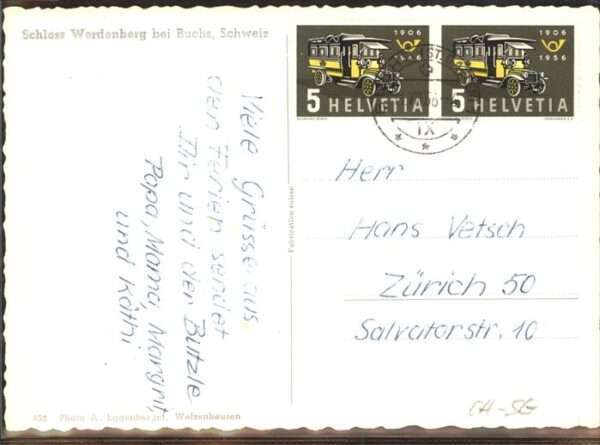 Schloss Werdenberg bei Buchs, Schweiz
1906
1956
5 HELVETIA
1906
1956
5 HELVETIA
IX
Viele Grüsse aus
den Ferien sendet
Ihr und den Butzle
Papa, Mama, Margrit,
und Käthi
Fabrication suisse
Herr
Hans Vetsch
Zürich 50
Salvatorstr. 10
Photo A. Eggenberger, Weizenhausen
CH-SG